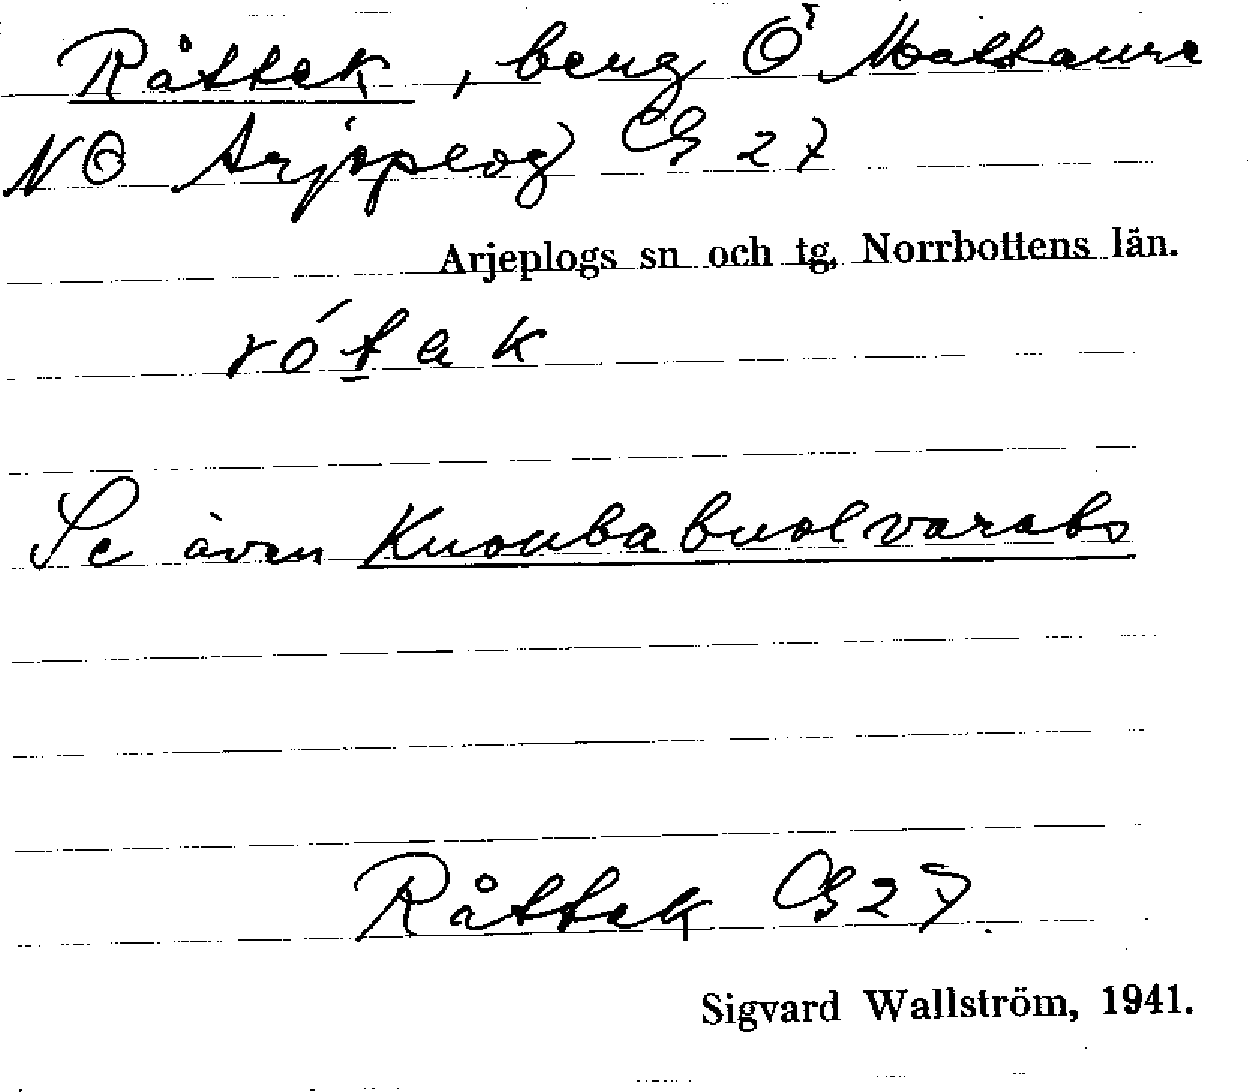 Råttek, berg Ö Mattaure
NO Arjeplog Gb 27
Arjeplogs sn och tg. Norrbottens län.
rótak
Se även Kuoubabuolvarats
Råttek Gb 27
Sigvard Wallström, 1941.